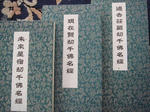 過去莊嚴劫千佛名經
現在賢劫千佛名經
未來星宿劫千佛名經